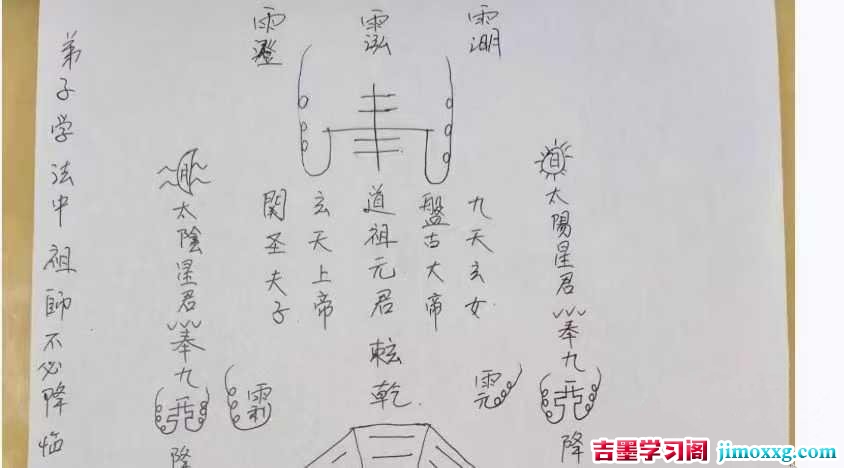 太陽星君奉九
降
九天玄女
盤古大帝
道祖元君
乾
玄天上帝
関圣夫子
太陰星君奉九
降
弟子学法中祖師不必降临
吉墨学习阁 jimoxxg.com